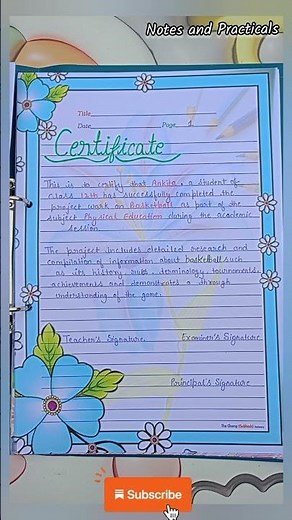 Notes and Practicals
Title
Date
Page 1
Certificate
This is to certify that Ankita, a student of
Class 12th has successfully completed the
project work on Basketball as part of the
subject Physical Education during the academic
session.
The project includes detailed research and
compilation of information about basketball such
as its history, rules, terminology, tournaments,
achievements and demonstrates a through
understanding of the game.
Teacher's Signature
Examiner's Signature
Principal's Signature
Subscribe